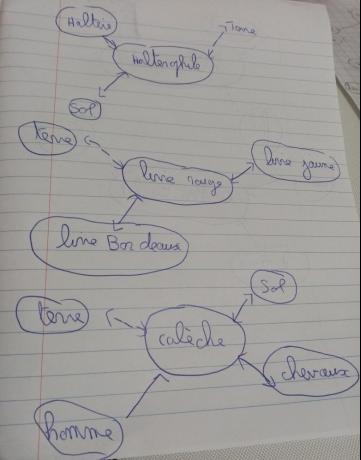 Haltère
Terre
Haltérophile
Sol
terre
livre jaune
livre rouge
livre Bordeaux
Sol
terre
calèche
chevaux
homme